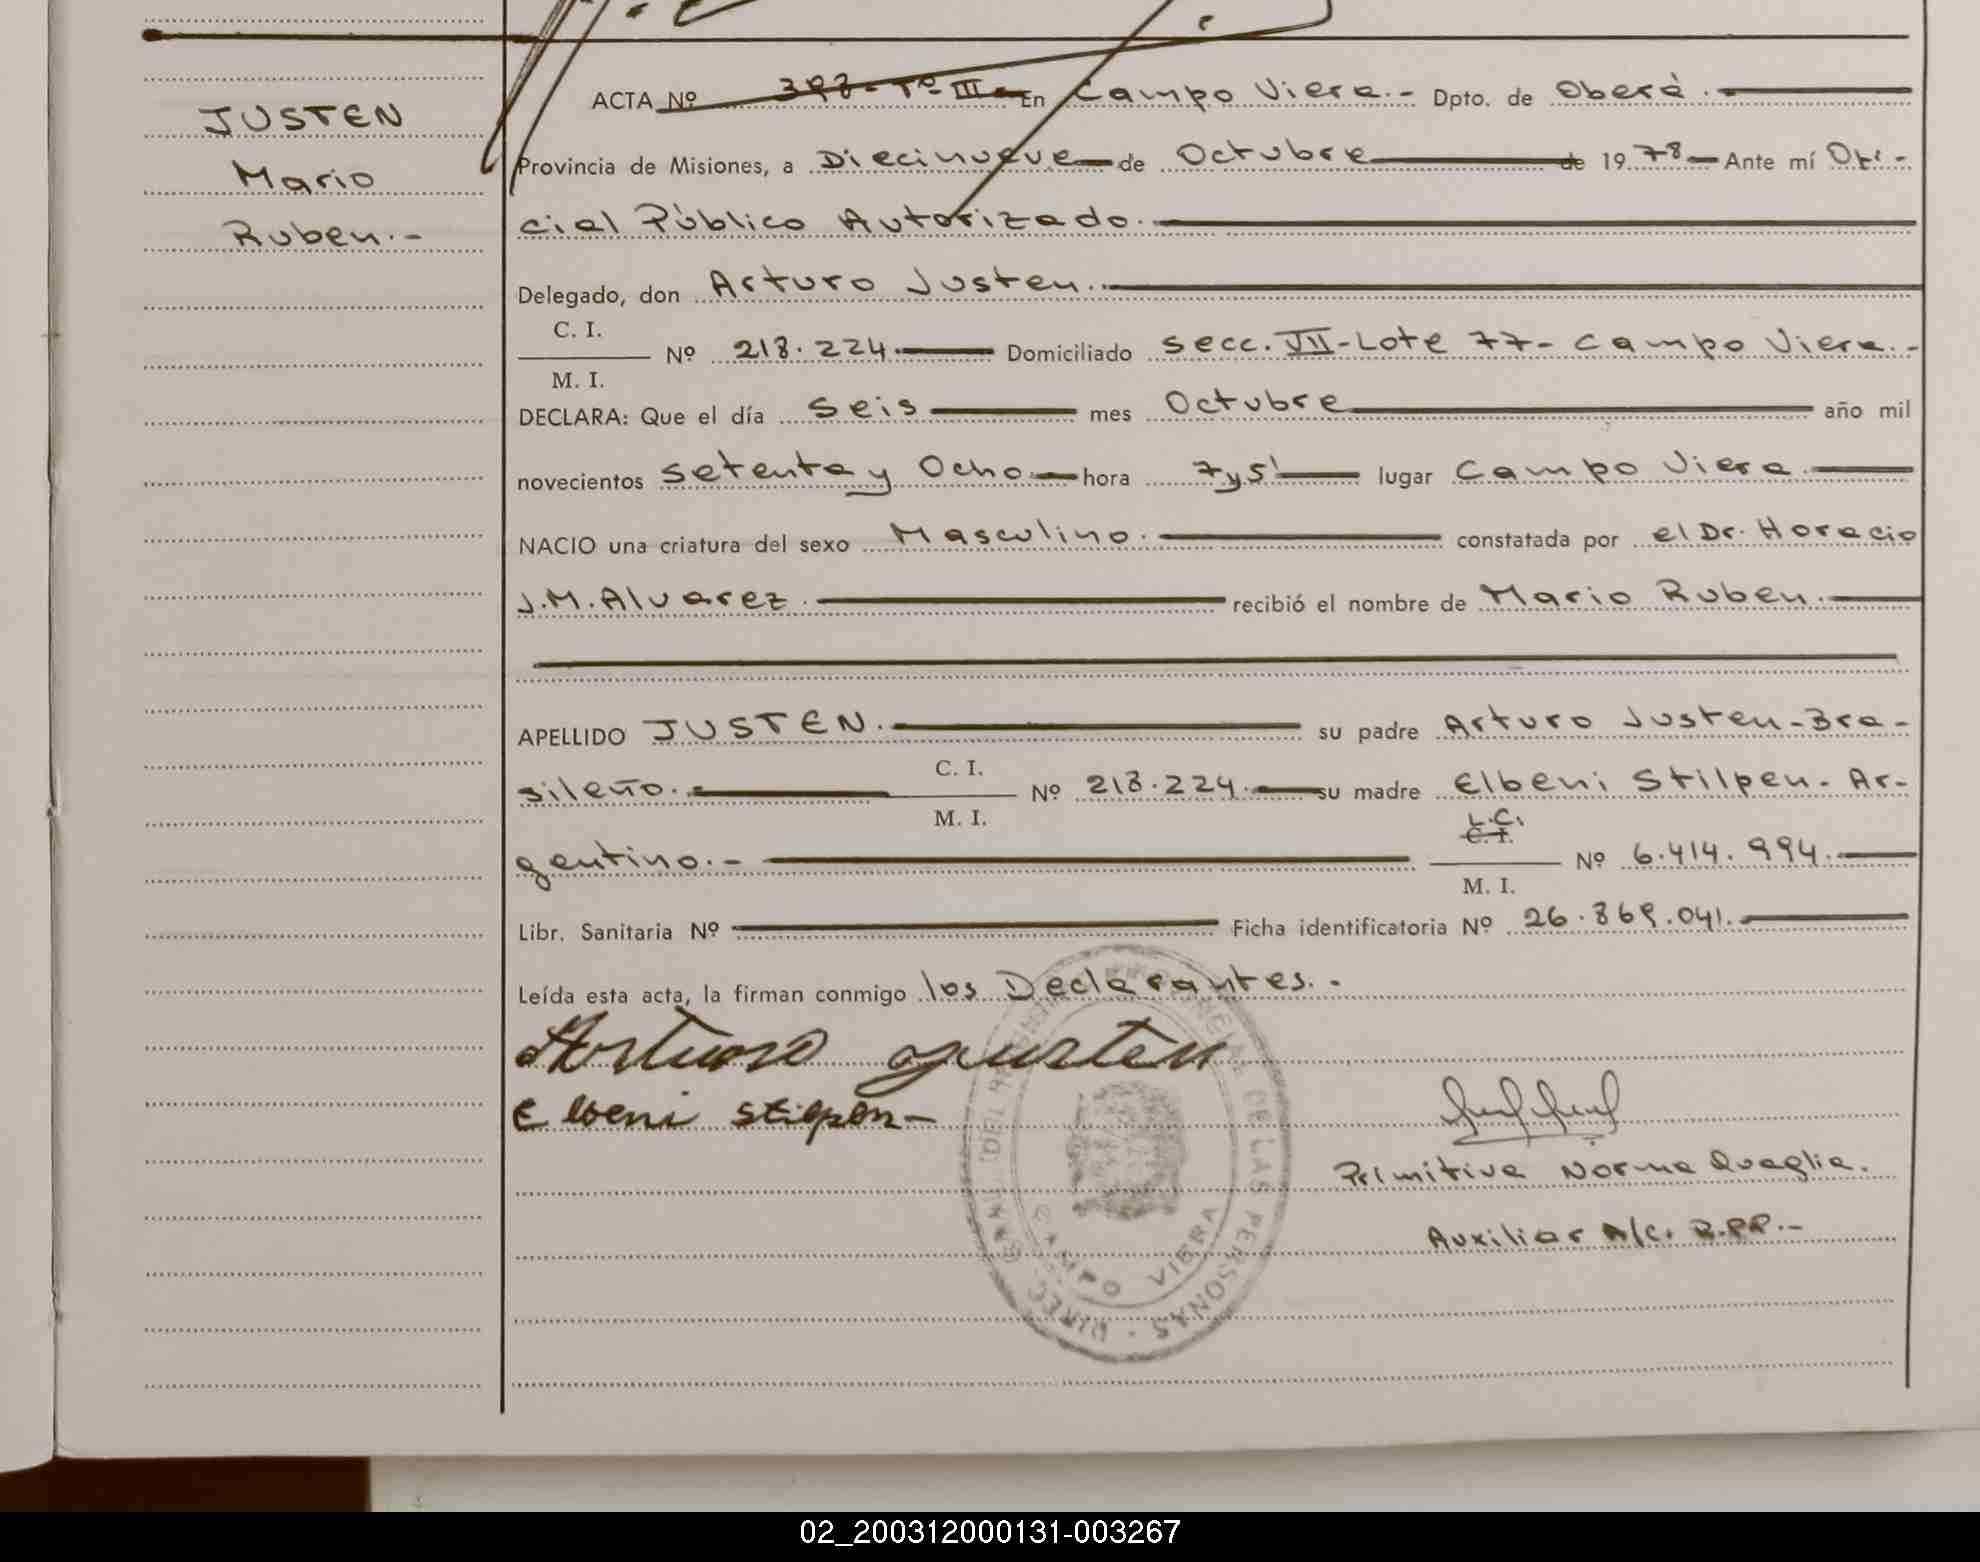 JUSTEN
Mario
Ruben.-
ACTA Nº 398-Tº III- En Campo Viera.- Dpto. de Oberá.
Provincia de Misiones, a Diecinueve de Octubre de 1978 Ante mí Ofi-
cial Público Autorizado.
Delegado, don Arturo Justen.
C. I.
Nº 218.224. Domiciliado Secc. VII-Lote 77- Campo Viera.-
M. I.
DECLARA: Que el día Seis mes Octubre año mil
novecientos Setenta y Ocho hora 7y5' lugar Campo Viera.
NACIO una criatura del sexo Masculino. constatada por el Dr. Horacio
J.M.Alvarez. recibió el nombre de Mario Ruben.
APELLIDO JUSTEN. su padre Arturo Justen-Bra-
sileño. C. I. Nº 218.224. su madre Elbeni Stilpen- Ar-
M. I.
L.C.
C. I.
gentino.- Nº 6.414.994.
M. I.
Libr. Sanitaria Nº Ficha identificatoria Nº 26.869.041.
Leída esta acta, la firman conmigo los Declarantes.-
Arturo Justen
Elbeni Stilpen-
Primitiva Norma Quaglia.
Auxiliar A/C. R.PP.-
DE LAS PERSONAS
CAMPO VIERA
02_200312000131-003267